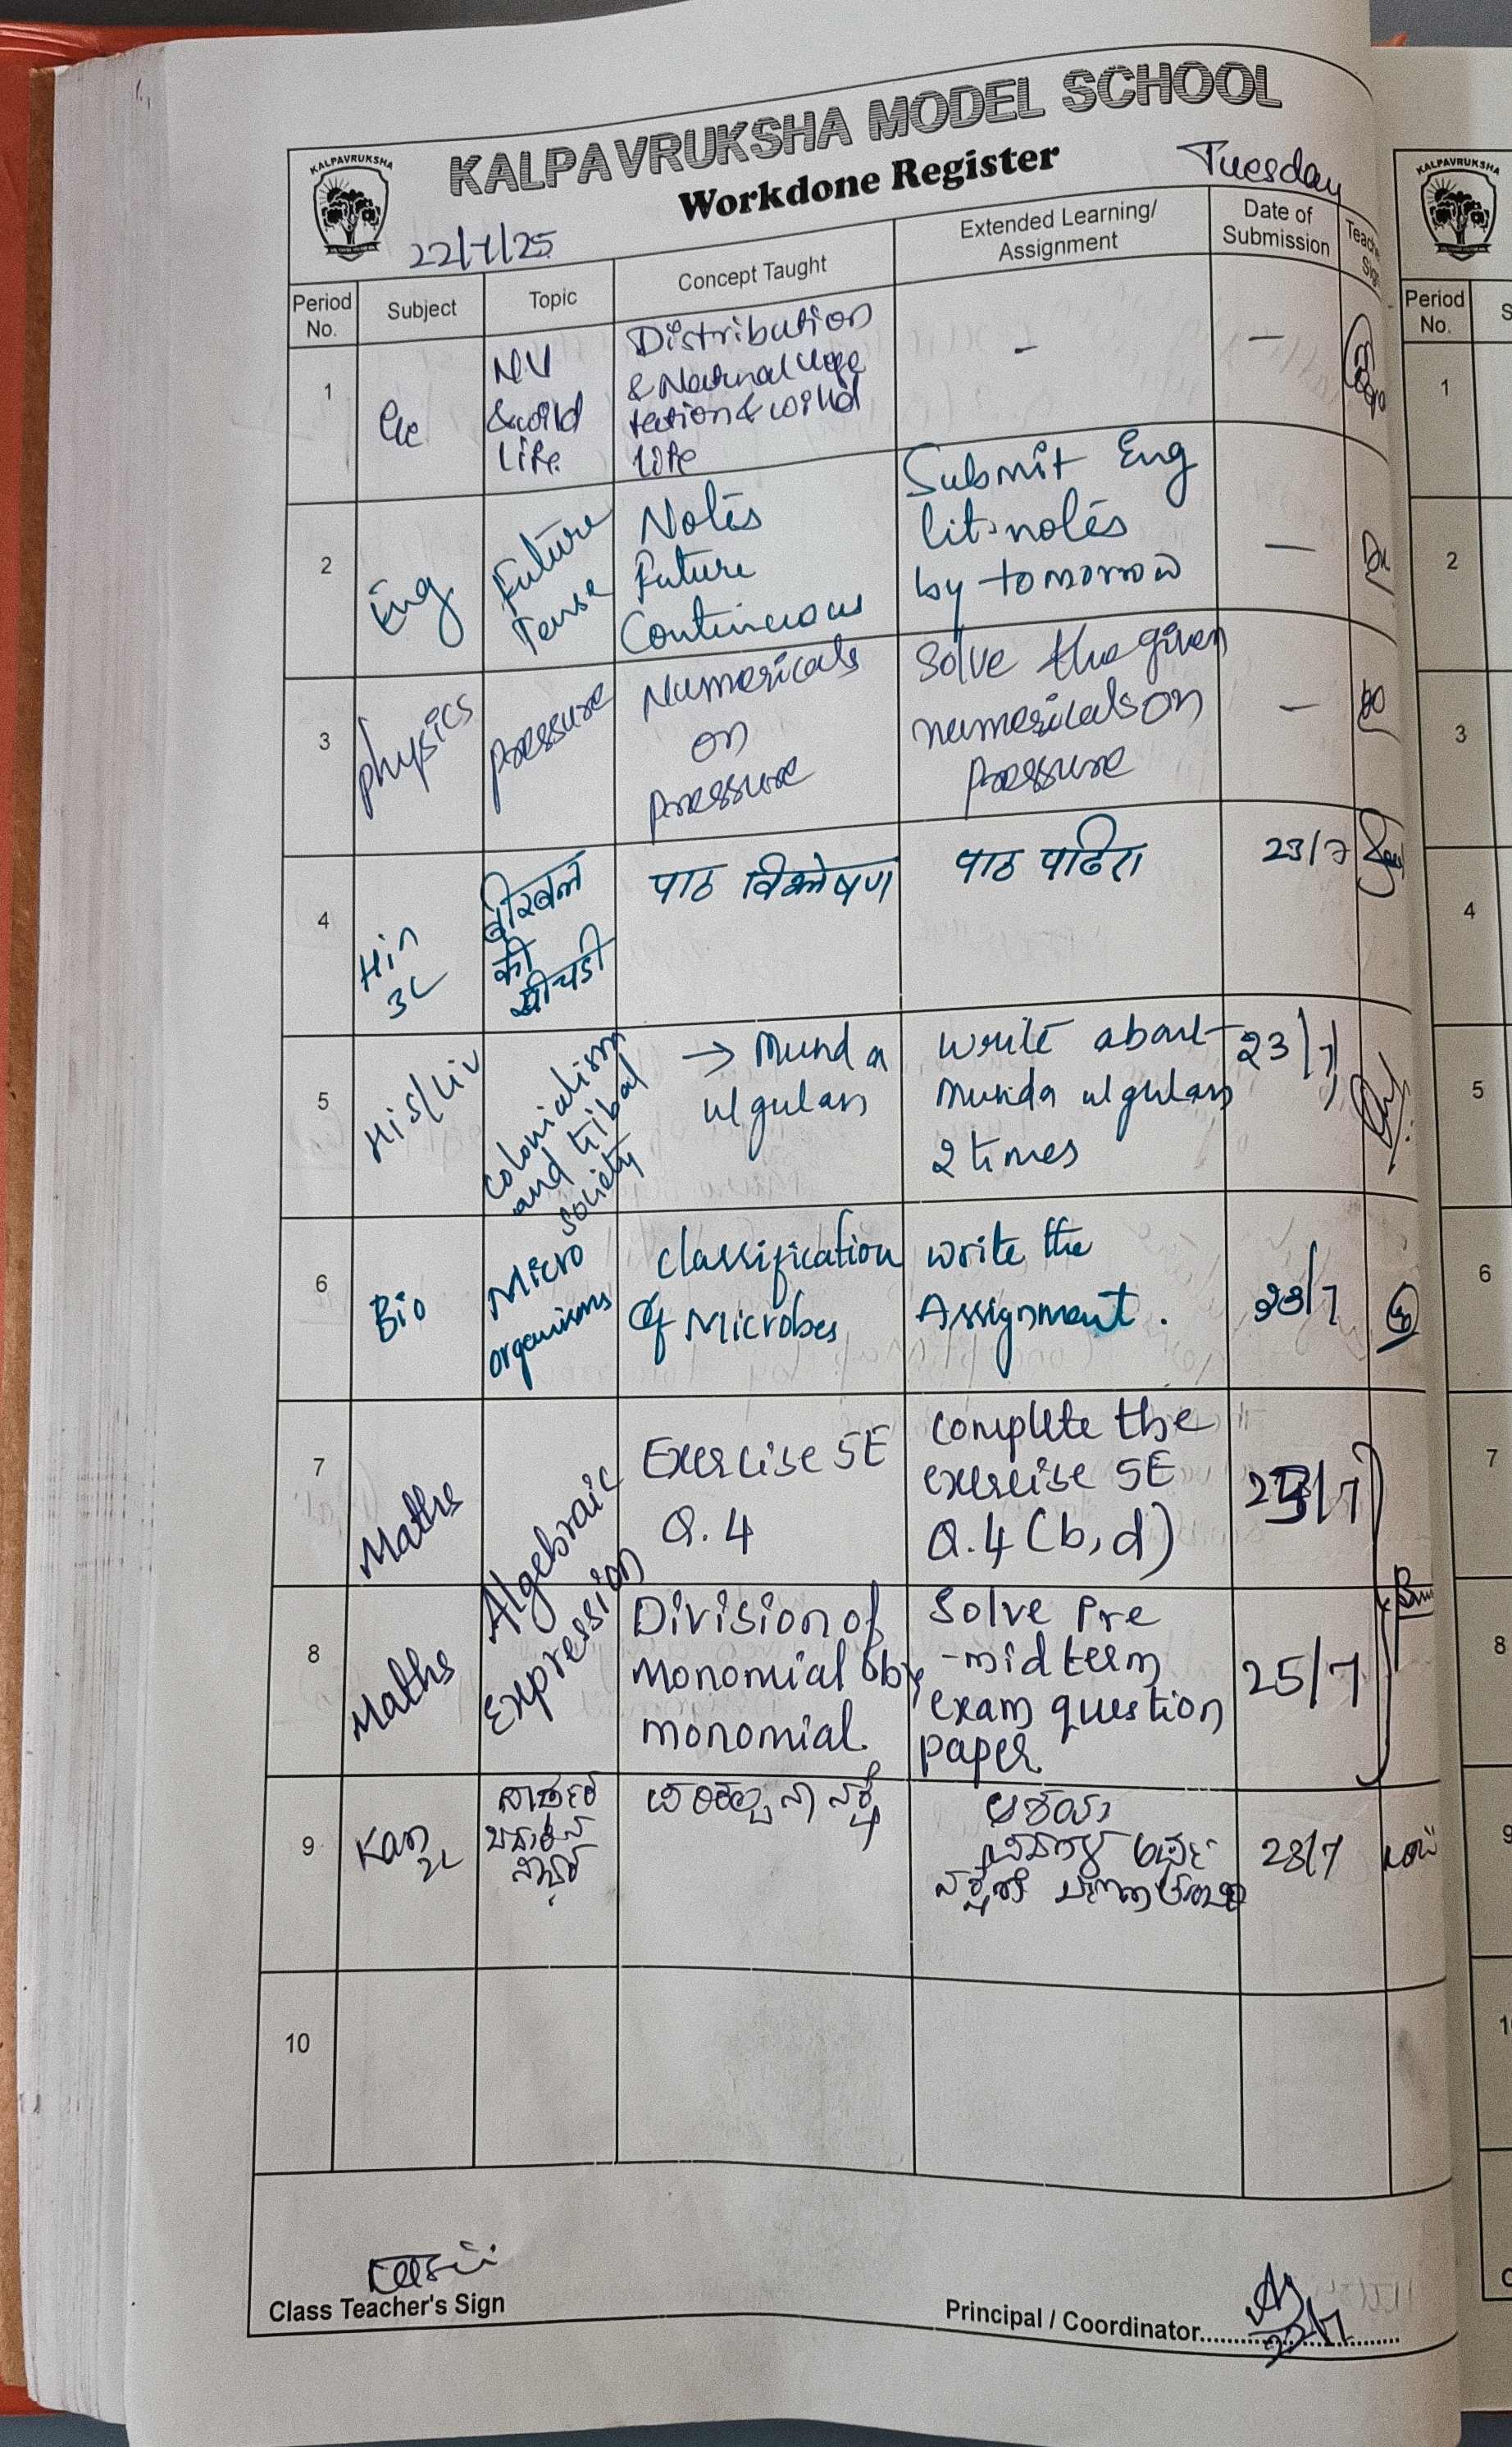 KALPAVRUKSHA MODEL SCHOOL
KALPAVRUKSHA
Workdone Register
Tuesday
22/7/25
Period No.
Subject
Topic
Concept Taught
Extended Learning/ Assignment
Date of Submission
1
NV
&wild
Life
Distribution
tection & wild
life
-
-
2
Eng
Future
Tense
Notes
Future
Continuous
Submit Eng
lit-notes
by tomorrow
-
3
physics
pressure
Numericals
on
pressure
Solve the given
numericals on
pressure
-
4
Hin
3L
बीरबल
की
पाठ विश्लेषण
23/7
5
His/Civ
colonialism
and tribal
society
→ Munda
ulgulan
write about
Munda ulgulan
2 times
23/7
6
Bio
Micro
organisms
classification
of Microbes
write the
Assignment.
23/7
7
Maths
Algebraic
Expression
Exercise 5E
Q.4
complete the
exercise 5E
Q.4 (b,d)
8
Maths
Division of
Monomial by
monomial.
Solve Pre
-mid term
exam question
paper
25/7
9
Kan
2L
23/7
10
Class Teacher's Sign
Principal / Coordinator
22/7
KALPAVRUKSHA
Period No.
1
2
3
4
5
6
7
8